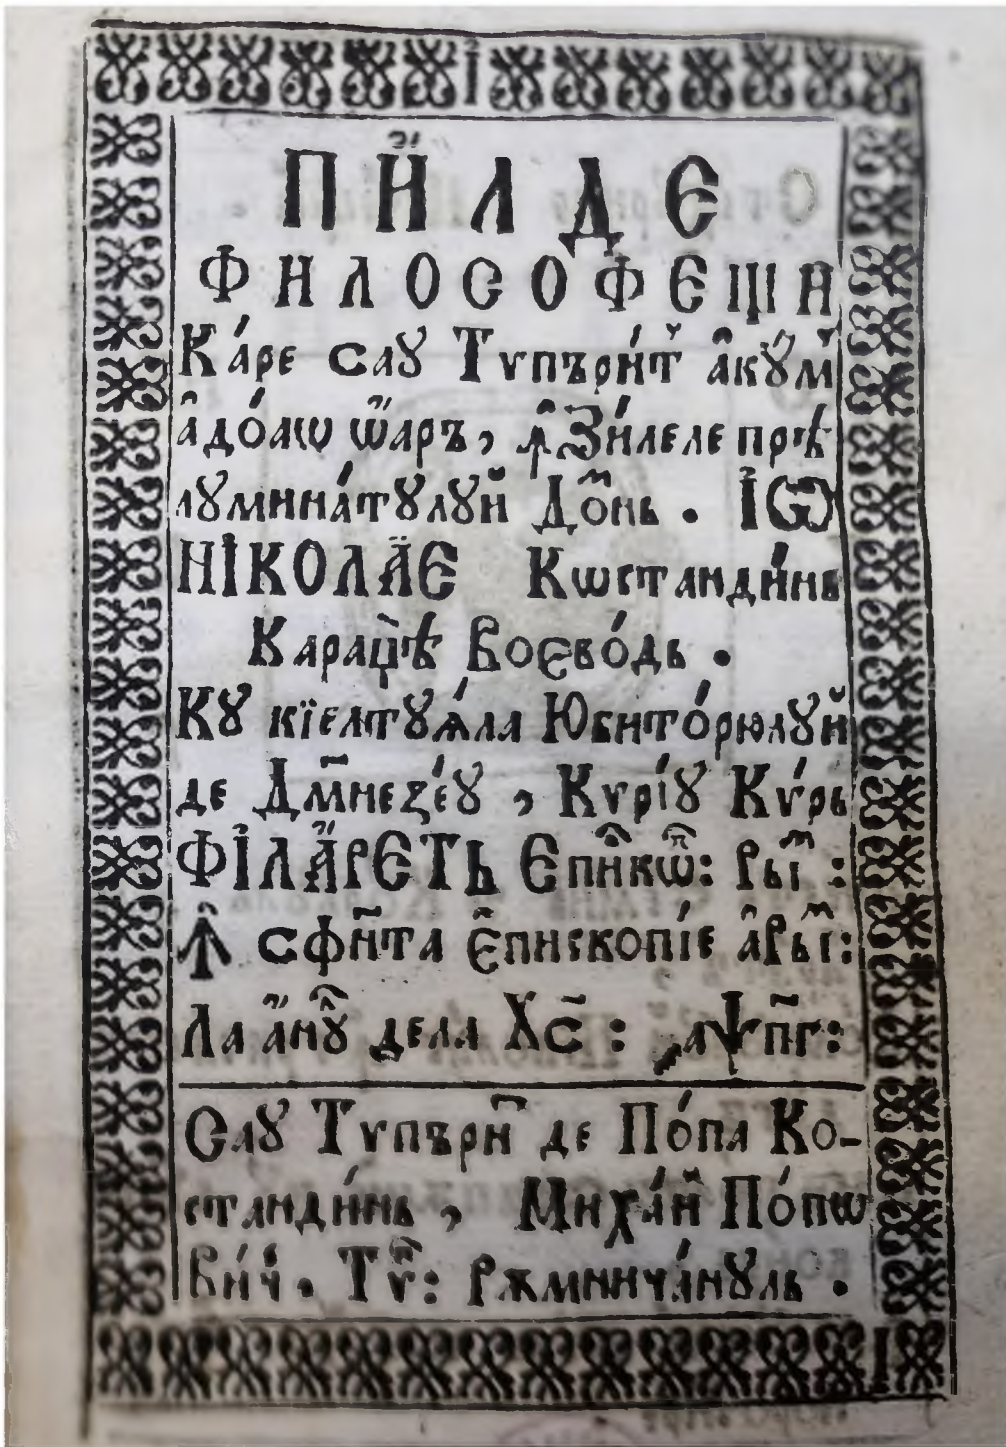 ПИ҆́ЛДЕ
ФИЛОСОФЕЩИ
Ка́ре сау҆ Тѵпъри́т̾ а҆кꙋ́м̾
а҆до́аѡ ѿаръ, ꙟ҆ Зи́леле прѣ́
лꙋмина́тꙋлꙋй До́мнь . І҆Ѡ
НІ҆КОЛА́Е Кѡстанди́нь
Караџѣ́ Воєво́дь .
Кꙋ кїелтꙋѧ́ла Юбито́рюлꙋй
де Дм҃неѕе́ꙋ , Кѵрі́ꙋ Ку́рь
ФІ҆ЛА́РЕТЬ Єпи҆кѡⷫ҇: Рыⷨ҇ :
Ꙟ҆ сфн҃та є҆пископі́е а҆Рыⷨ҇:
Ла а҆́нꙋⷧ҇ дела Хс҃ : ҂аѱп҃г:
Саꙋ Тѵпъриⷮ де По́па Ко-
станди́нь , Миха́й По́пѡ
ви́ч . Тѵⷫ҇: Рѫмничѧ́нꙋль .